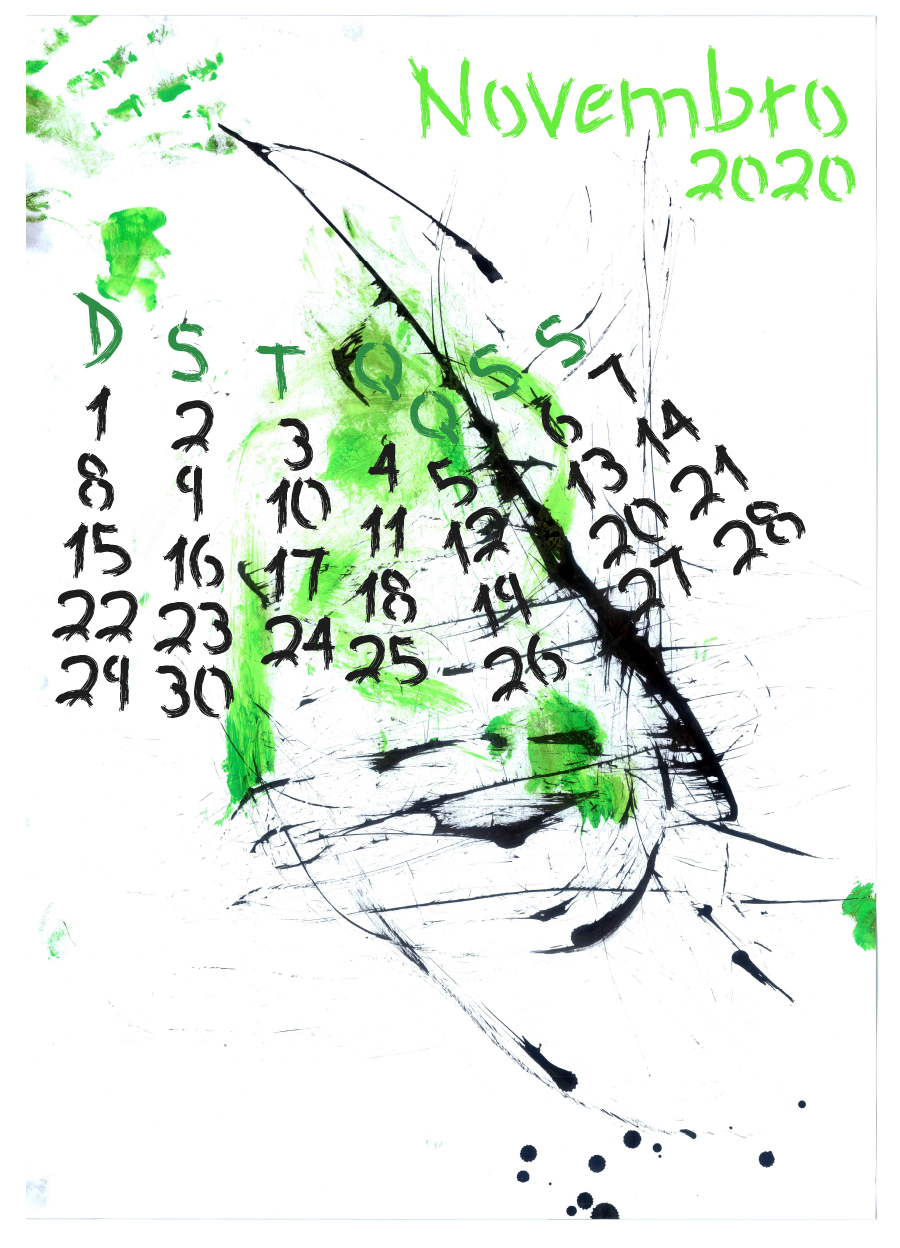 Novembro
2020
D S T Q Q S S
1 2 3 4 5 6 7
8 9 10 11 12 13 14
15 16 17 18 19 20 21
22 23 24 25 26 27 28
29 30